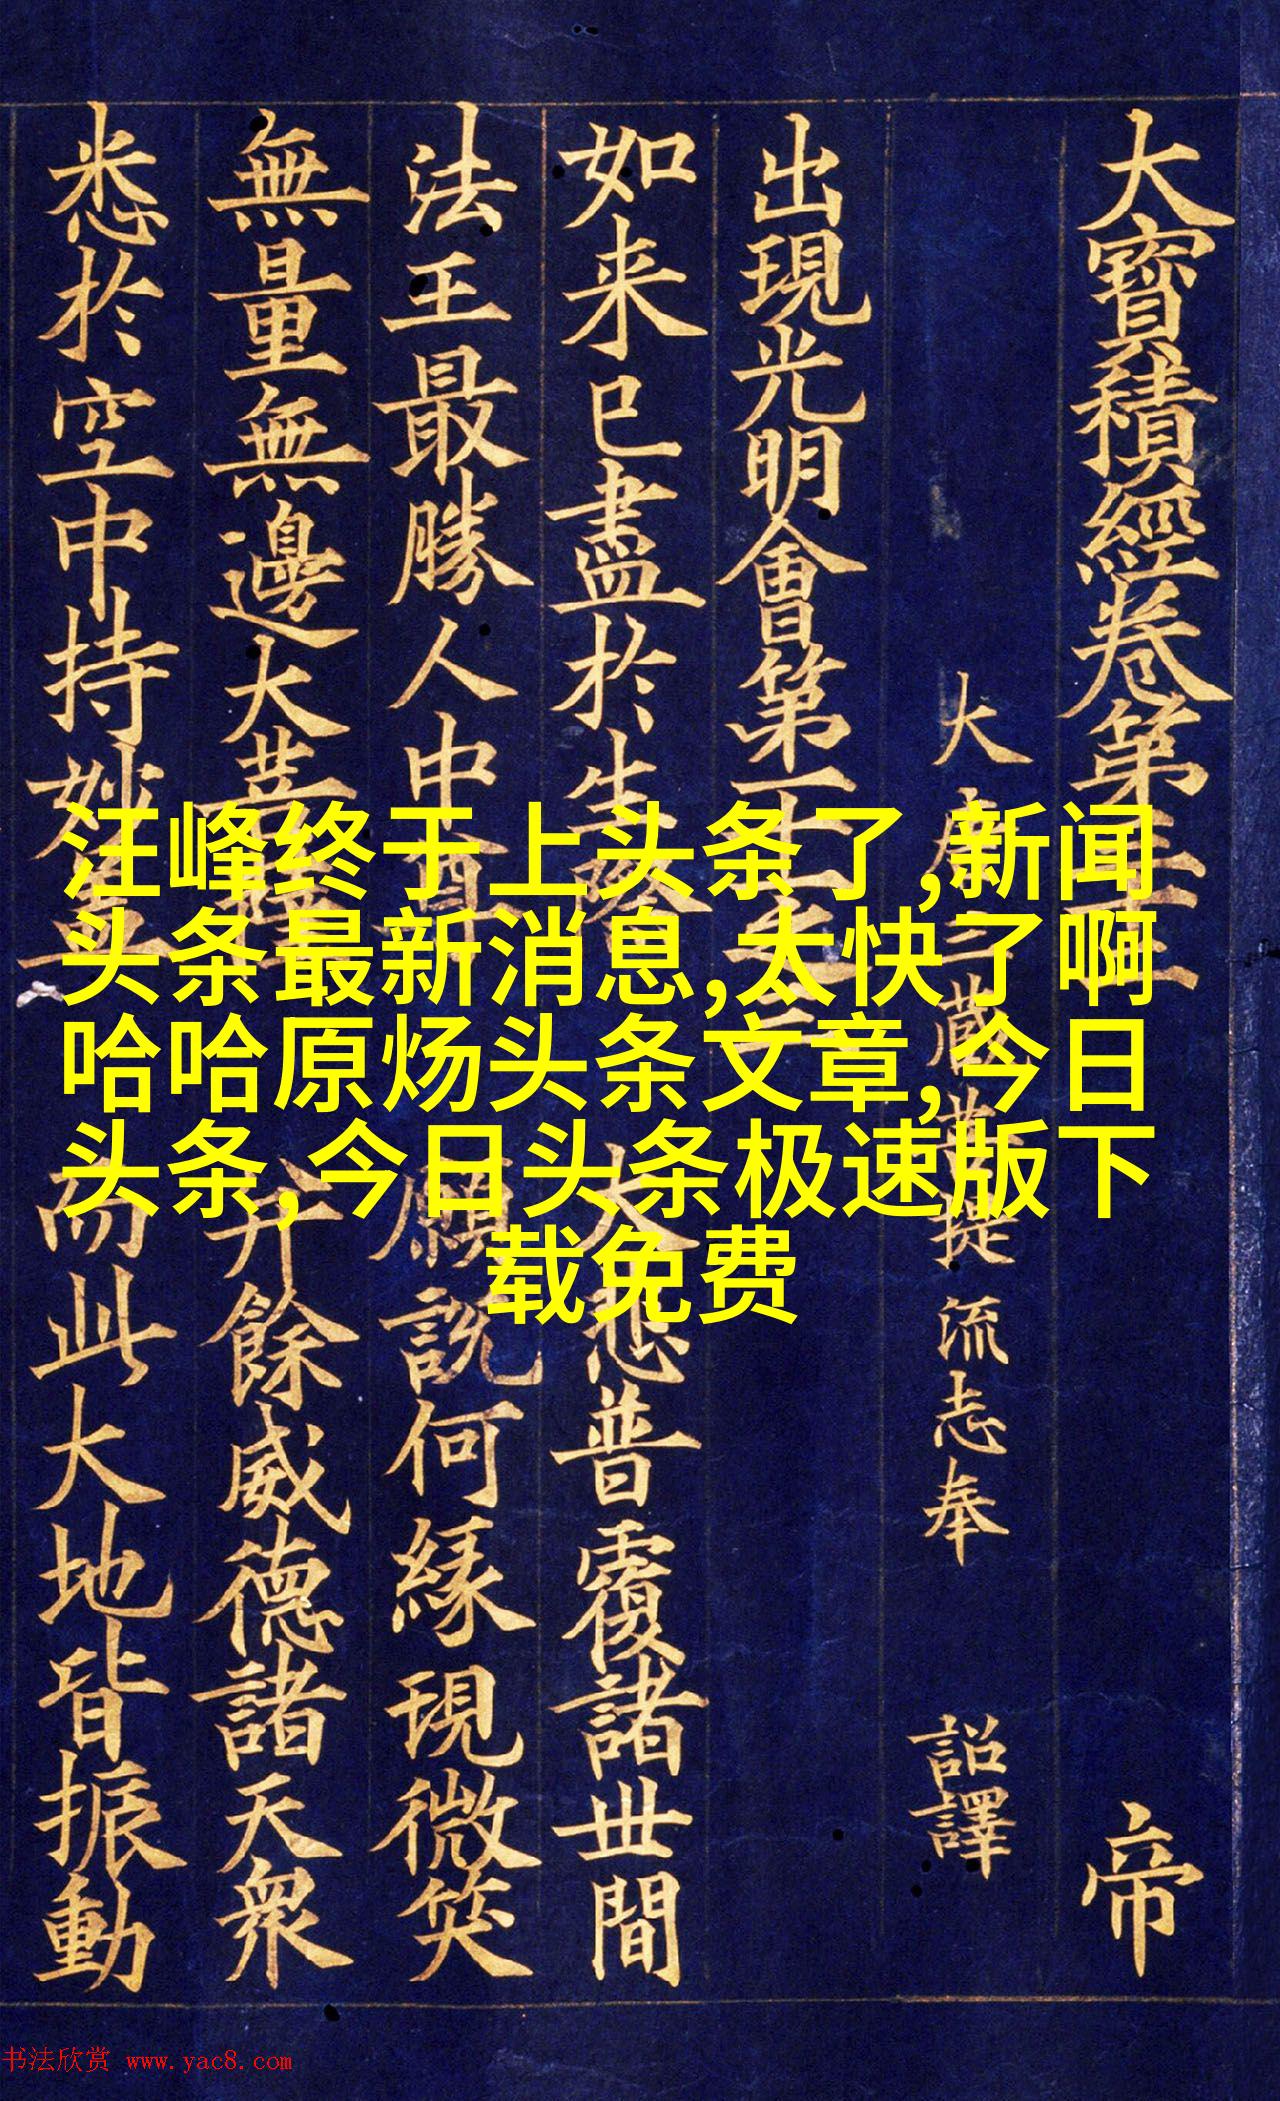 大寶積經卷第三 帝
大唐三藏菩提流志奉 詔譯
出現光明會第十一之三
如来已盡於生際 大悲普覆諸世間
法王最勝人中尊 願說何縁現微笑
無量無邊大菩薩 并餘威德諸天衆
悉於空中持妙盖 而此大地皆振動
汪峰终于上头条了,新闻
头条最新消息,太快了啊
哈哈原炀头条文章,今日
头条,今日头条极速版下
载免费
书法欣赏 www.yac8.com